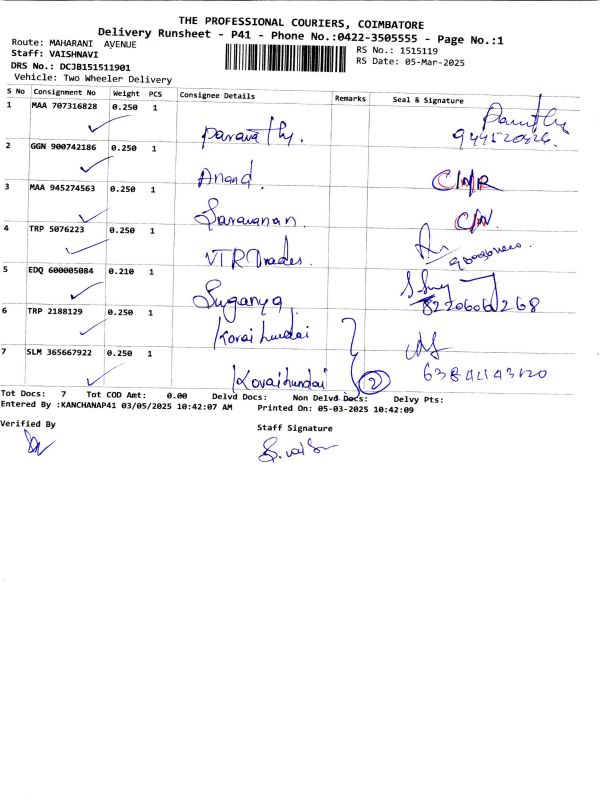 THE PROFESSIONAL COURIERS, COIMBATORE
Delivery Runsheet - P41 - Phone No.:0422-3505555 - Page No.:1
Route: MAHARANI AVENUE
RS No.: 1515119
Staff: VAISHNAVI
RS Date: 05-Mar-2025
DRS No.: DCJB151511901
Vehicle: Two Wheeler Delivery
S No Consignment No Weight PCS Consignee Details Remarks Seal & Signature
1 MAA 707316828 0.250 1
2 GGN 900742186 0.250 1
Anand.
3 MAA 945274563 0.250 1
Saravanan.
4 TRP 5076223 0.250 1
VTR Trades.
5 EDQ 600005084 0.210 1
Suganya
8220606268
6 TRP 2188129 0.250 1
Kovai hundai
7 SLM 365667922 0.250 1
Kovai hundai 2
Tot Docs: 7 Tot COD Amt: 0.00 Delvd Docs: Non Delvd Docs: Delvy Pts:
Entered By :KANCHANAP41 03/05/2025 10:42:07 AM Printed On: 05-03-2025 10:42:09
Verified By
Staff Signature